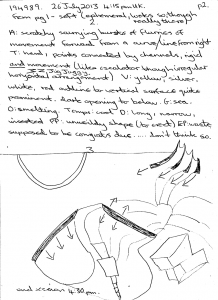 194989. 26 July 2013 4:15pm UK. P2.
from pag1 - soft (ephemeral, looks so, though really sharp)
A: scratchy carrying bursts of flumes of
movement forward from a curve/line from right
T: head, points connected by channels, rigid
and movement (like escalator but irregular
horizontal arrangement) V: yellow, silver,
white, red adline to vertical surface quite
prominent. East opening to below. G: sea.
O: smelting. Temps: cool D: long, narrow,
inserted PP: unwieldy shape (to west) EP: waste
supposed to be congratulus..... don't think so.
3
end xscran 4:30pm.